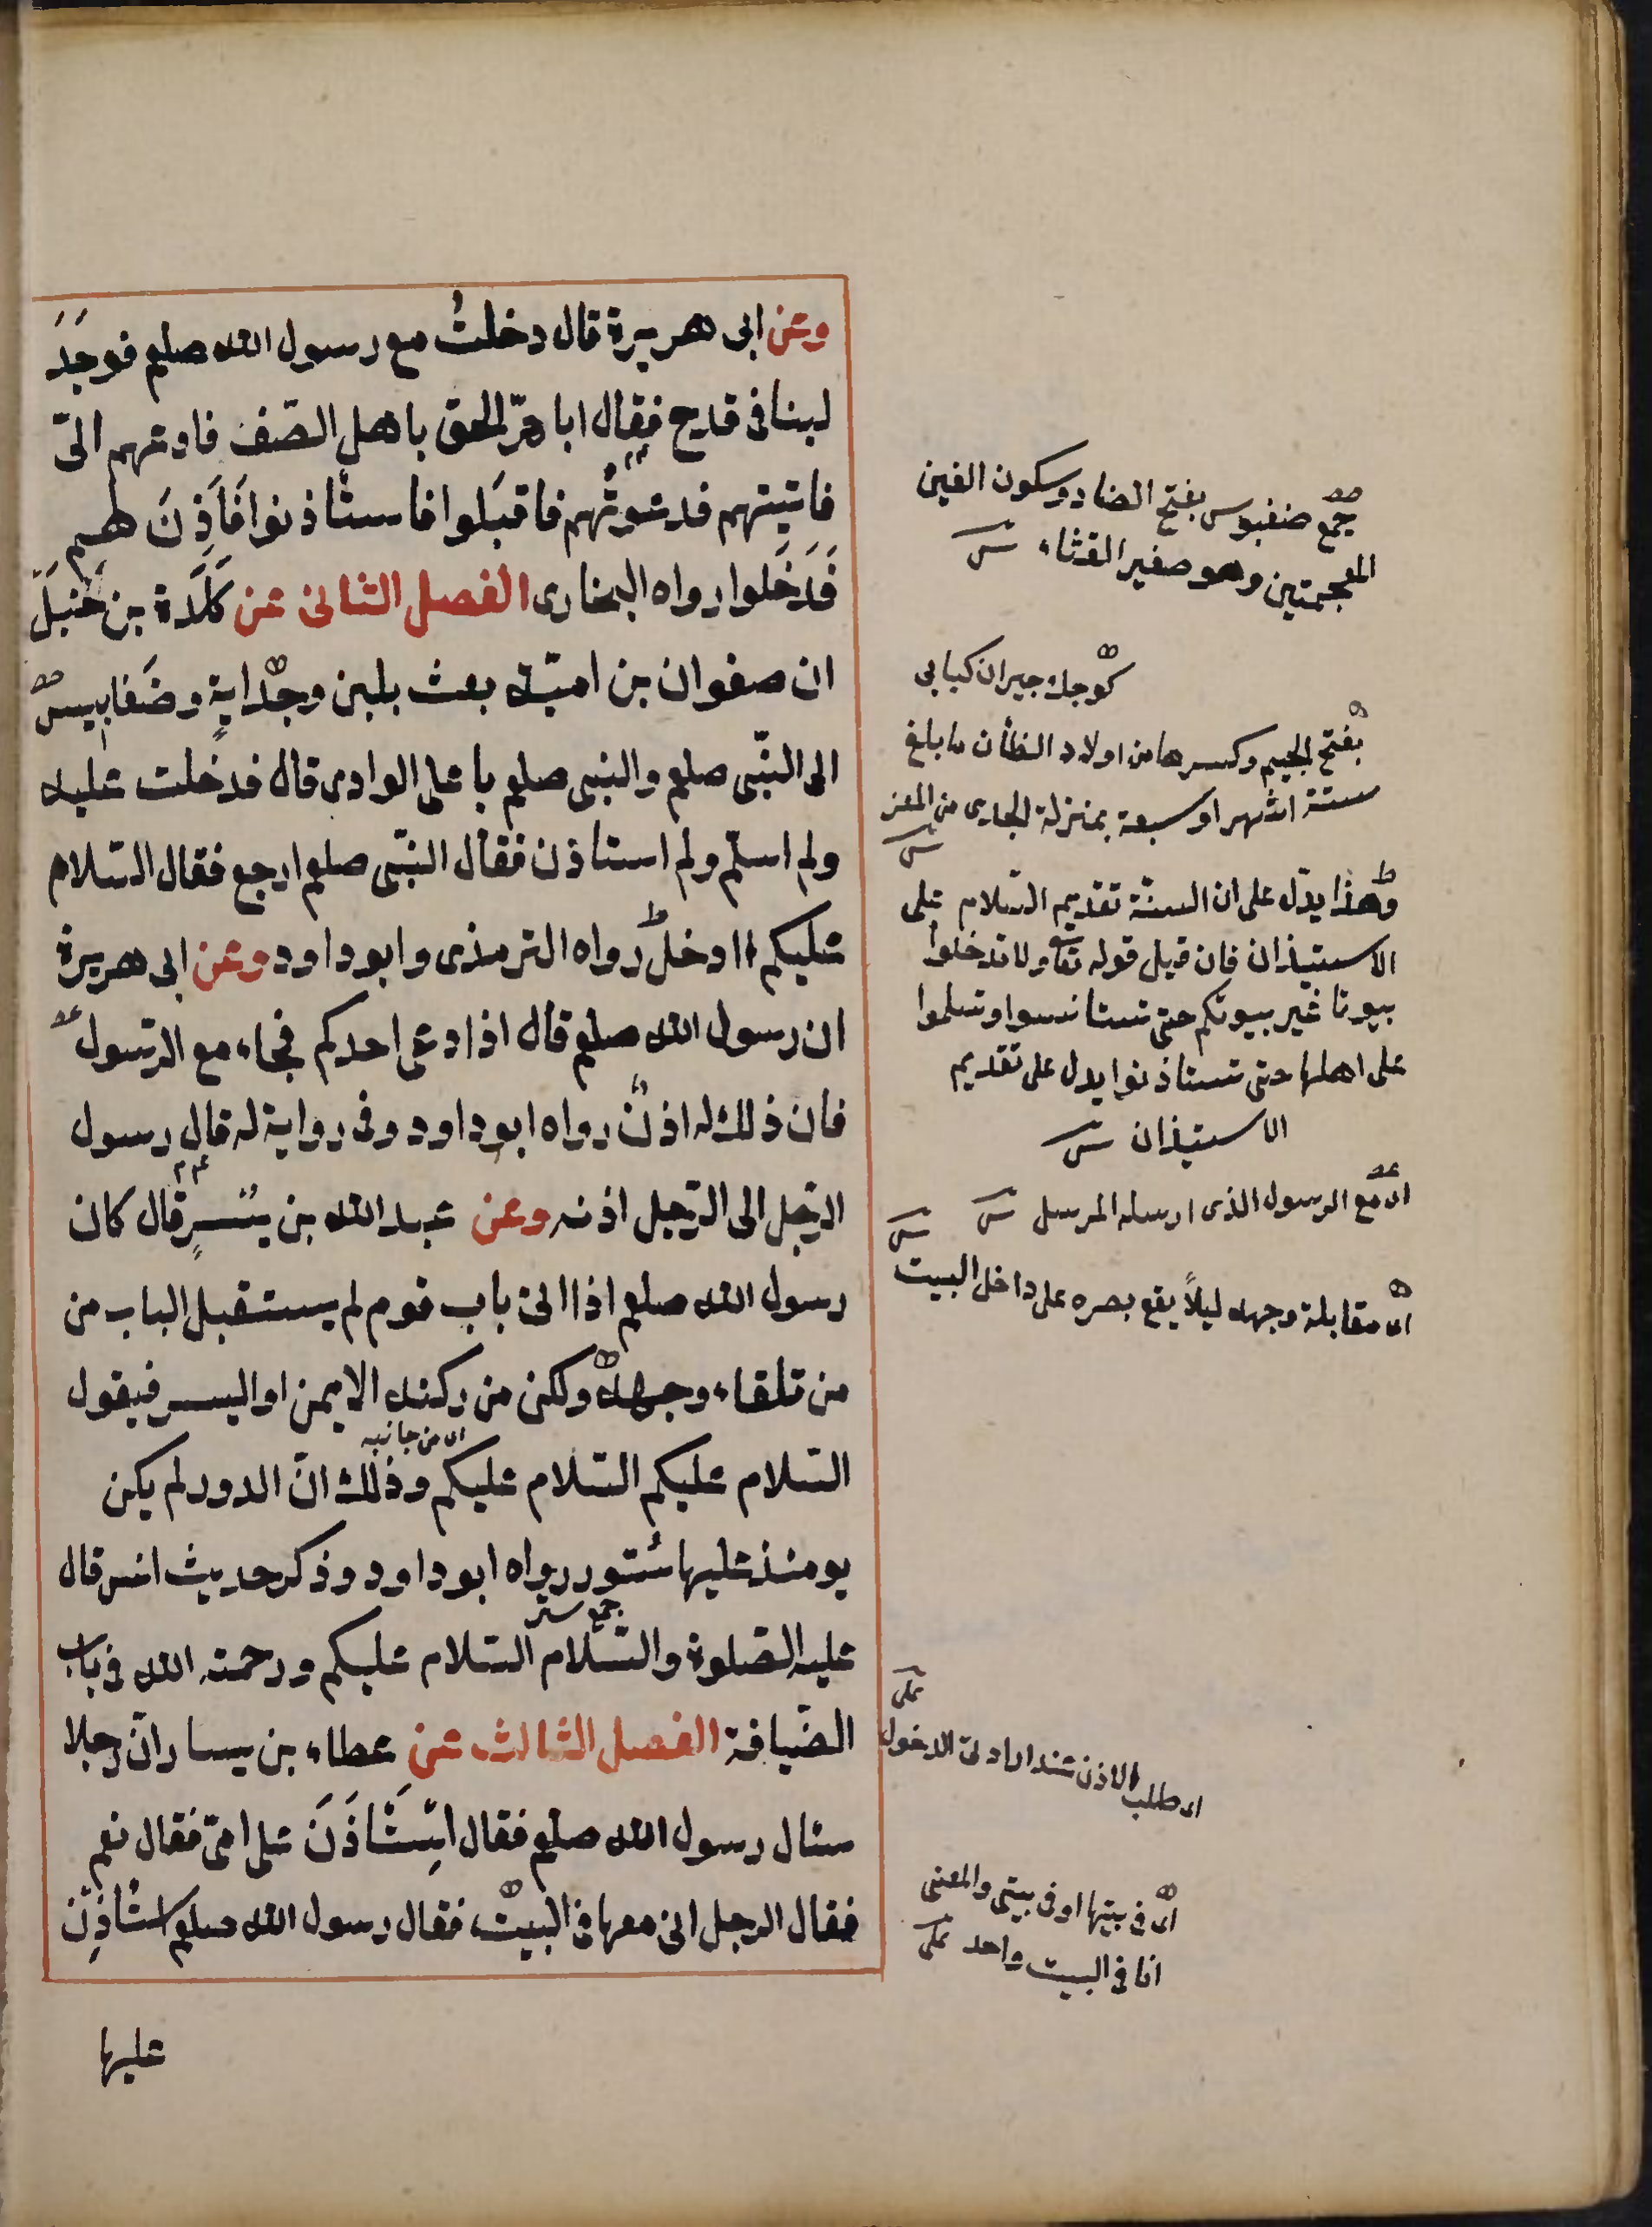 وعن ابى هريرة قال دخلتُ مع رسول الله صلعم فوجَدَ
لبنا فى قدح فقال ابا هرّ الحق باهل الصّف فادعهم الىّ
فاتيتهم فدعوتُهم فاقبَلوا فاستأذنوا فَاَذِنَ لهم
فَدَخَلوا رواه البخارى الفصل الثانى عن كَلَدَة بن حَنبَلَ
ان صفوان بن اميّة بعث بلبن وجداية وضَغابيس
الى النّبى صلعم والنبى صلعم باعلى الوادى قال فدخلت عليه
ولم اسلّم ولم استأذن فقال النبّى صلعم ارجع فقال السّلام
عليكم اادخل رواه الترمذى وابو داود وعن ابى هريرة
ان رسول الله صلعم قال اذا دعى احدكم فجاء مع الرّسول
فان ذلك له اذن رواه ابو داود وفى رواية له قال رسول
الرّجل الى الرّجل اذنه وعن عبد الله بن بُسرٍ قال كان
رسول الله صلعم اذا اتى باب قوم لم يستقبل الباب من
من تلقاء وجهه ولكن من ركنه الايمن او اليسر فيقول
اى من جانبه
السّلام عليكم السّلام عليكم وذلك انّ الدور لم يكن
يومئذ عليها سُتور رواه ابو داود وذكر حديث انس قال
جمع ستر
عليه الصّلوة والسّلام السّلام عليكم ورحمة الله فى باب
الضّيافة الفصل الثالث عن عطاء بن يسار انّ رجلا
سئال رسول الله صلعم فقال اَستَأذَنَ على امّى فقال نعم
فقال الرجل انى معها فى البيت فقال رسول الله صلعم استأذِن
عليها
جمع ضغبوس بفتح الضاد وسكون الغين
المعجمتين وهو صغير القثاء
كوجك جيران كيابى
بفتح الجيم وكسرها من اولاد الظأن ما بلغ
ستة اشهر او سبعة بمنزلة الجدى من المعز
وهذا يدّل على ان السنّة تقديم السّلام على
الاستيذان فان قيل قوله تعا ولا تدخلوا
بيوتا غير بيوتكم حتى تستأنسوا وتسلموا
على اهلها حتى تستأذنوا يدل على تقديم
الاستيذان
اى مع الرسول الذى ارسله المرسل
اى مقابلة وجهه ليلاً يقع بصره على داخل البيت
اى طلب الاذن عند ارادتى الدخول
على
اى فى بيتها او فى بيتى والمعنى
انا فى البيت واحد